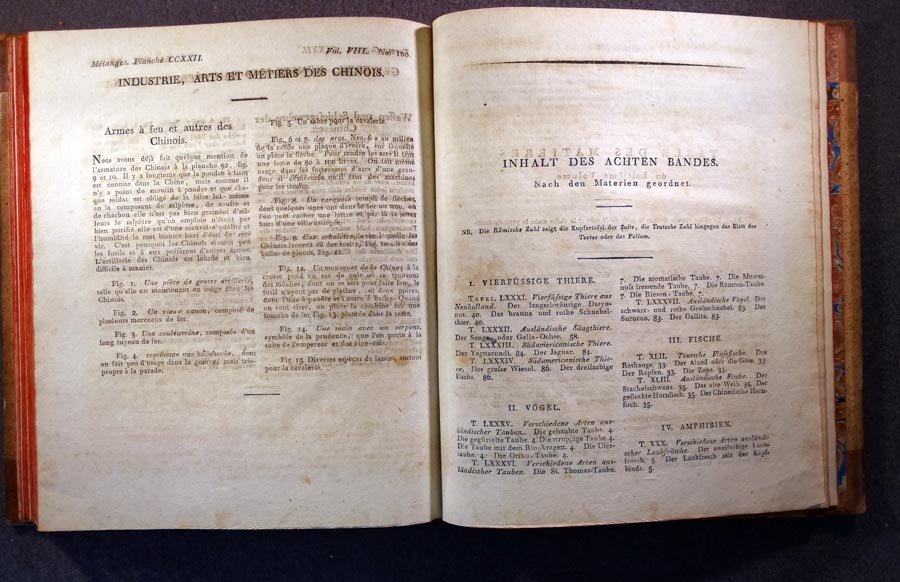 Mélanges. Planche CCXXII.
Vol. VIII. No. 100.
INDUSTRIE, ARTS ET MÉTIERS DES CHINOIS.
Armes à feu et autres des
Chinois.
Nous avons déjà fait quelque mention de
l'armature des Chinois à la planche 92, fig.
9 et 10. Il y a longtems que la poudre à tirer
est connue dans la Chine, mais comme il
n'y a point de moulin à poudre et que cha-
que soldat est obligé de la faire lui-même
en la composant de salpêtre, de soufre et
de charbon elle n'est pas bien grainée; d'ail-
leurs le salpêtre qu'on emploie n'étant pas
bien purifié elle est d'une mauvaise qualité et
l'humidité la met bientôt hors d'état de ser-
vir. C'est pourquoi les Chinois aiment peu
les fusils et à eux préfèrent d'autres armes.
L'artillerie des Chinois est lourde et bien
difficile à manier.
Fig. 1. Une pièce de grosse artillerie,
telle qu'elle est maintenant en usage chez les
Chinois.
Fig. 2. Un vieux canon, composé de
plusieurs morceaux de fer.
Fig. 3. Une couleuvrine, composée d'un
long tuyeau de fer.
Fig. 4. représente une hallebarde, dont
on fait peu d'usage dans la guerre, mais très-
propre à la parade.
Fig. 5. Un sabre pour la cavalerie.
Fig. 6 et 7. des arcs. Nro. 6 a au milieu
de la corde une plaque d'ivoire, sur laquelle
on place la flèche. Pour tendre les arcs il faut
une force de 80 à 100 livres. On fait même
usage dans les forteresses d'arcs d'une gran-
deur si démésurée qu'il faut des machines
pour les tendre.
Fig. 8. Un carquois rempli de flèches,
dont quelques unes ont dans le fer un trou, où
l'on peut cacher une lettre et par là la jeter
hors d'une ville assiégée.
Fig. 9. Une arbalète, avec laquelle les
Chinois lancent ou des traits, Fig. 10. ou des
balles de plomb, Fig. 11.
Fig. 12. Un mousquet de la Chine; à la
crosse pend un sac de cuir où se trouvent
des mèches, dont on se sert pour faire feu, le
fusil n'ayant pas de platine, et deux poires,
dont l'une à poudre et l'autre à balles. Quand
on veut tirer, on place la carabine sur une
fourche de fer Fig. 13. plantée dans la terre.
Fig. 14. Une main avec un serpent,
symbole de la prudence, que l'on porte à la
suite de l'empereur et des vice-rois.
Fig. 15. Diverses espèces de lances, surtout
pour la cavalerie.
INHALT DES ACHTEN BANDES.
Nach den Materien geordnet.
NB. Die Römische Zahl zeigt die Kupfertafel der Suite, die Teutsche Zahl hingegen das Blatt des
Textes oder das Folium.
I. VIERFÜSSIGE THIERE.
TAFEL LXXXI. Vierfüsige Thiere aus
Neuholland. Der langschwänzige Dasyu-
rus. 40. Das braune und rothe Schnabel-
thier. 40.
T. LXXXII. Ausländische Säugthiere.
Der Sanga- oder Galla-Ochse. 58.
T. LXXXIII. Südamericanische Thiere.
Der Yaguarundi. 84. Der Jaguar. 84.
T. LXXXIV. Südamericanische Thie-
re. Das grosse Wiesel. 86. Der dreifarbige
Fuchs. 86.
II. VÖGEL.
T. LXXXV. Verschiedene Arten aus-
ländischer Tauben. Die gehaubte Taube. 4.
Die gegürtelte Taube. 4. Die struppige Taube. 4.
Die Taube mit dem Ringkragen. 4. Die Ufer-
taube. 4. Die Oriku-Taube. 4.
T. LXXXVI. Verschiedene Arten aus-
ländischer Tauben. Die St. Thomas-Taube.
7. Die aromatische Taube. 7. Die Muscat-
nuß fressende Taube. 7. Die Ramron-Taube.
7. Die Riesen-Taube. 7.
T. LXXXVII. Ausländische Vögel. Der
schwarz- und rothe Großschnabel. 83. Der
Surucua. 83. Der Gallita. 83.
III. FISCHE.
T. XLII. Teutsche Flußfische. Das
Rothauge. 33. Der Aland oder die Göse. 33.
Der Rapfen. 33. Die Zope. 33.
T. XLIII. Ausländische Fische. Der
Stachelschwanz. 35. Das alte Weib. 35. Der
gefleckte Hornfisch. 35. Der Chinesische Horn-
fisch. 35.
IV. AMPHIBIEN.
T. XXX. Verschiedene Arten ausländi-
scher Laubfrösche. Der zweifarbige Laub-
frosch. 5. Der Laubfrosch mit der Kopf-
binde. 5.